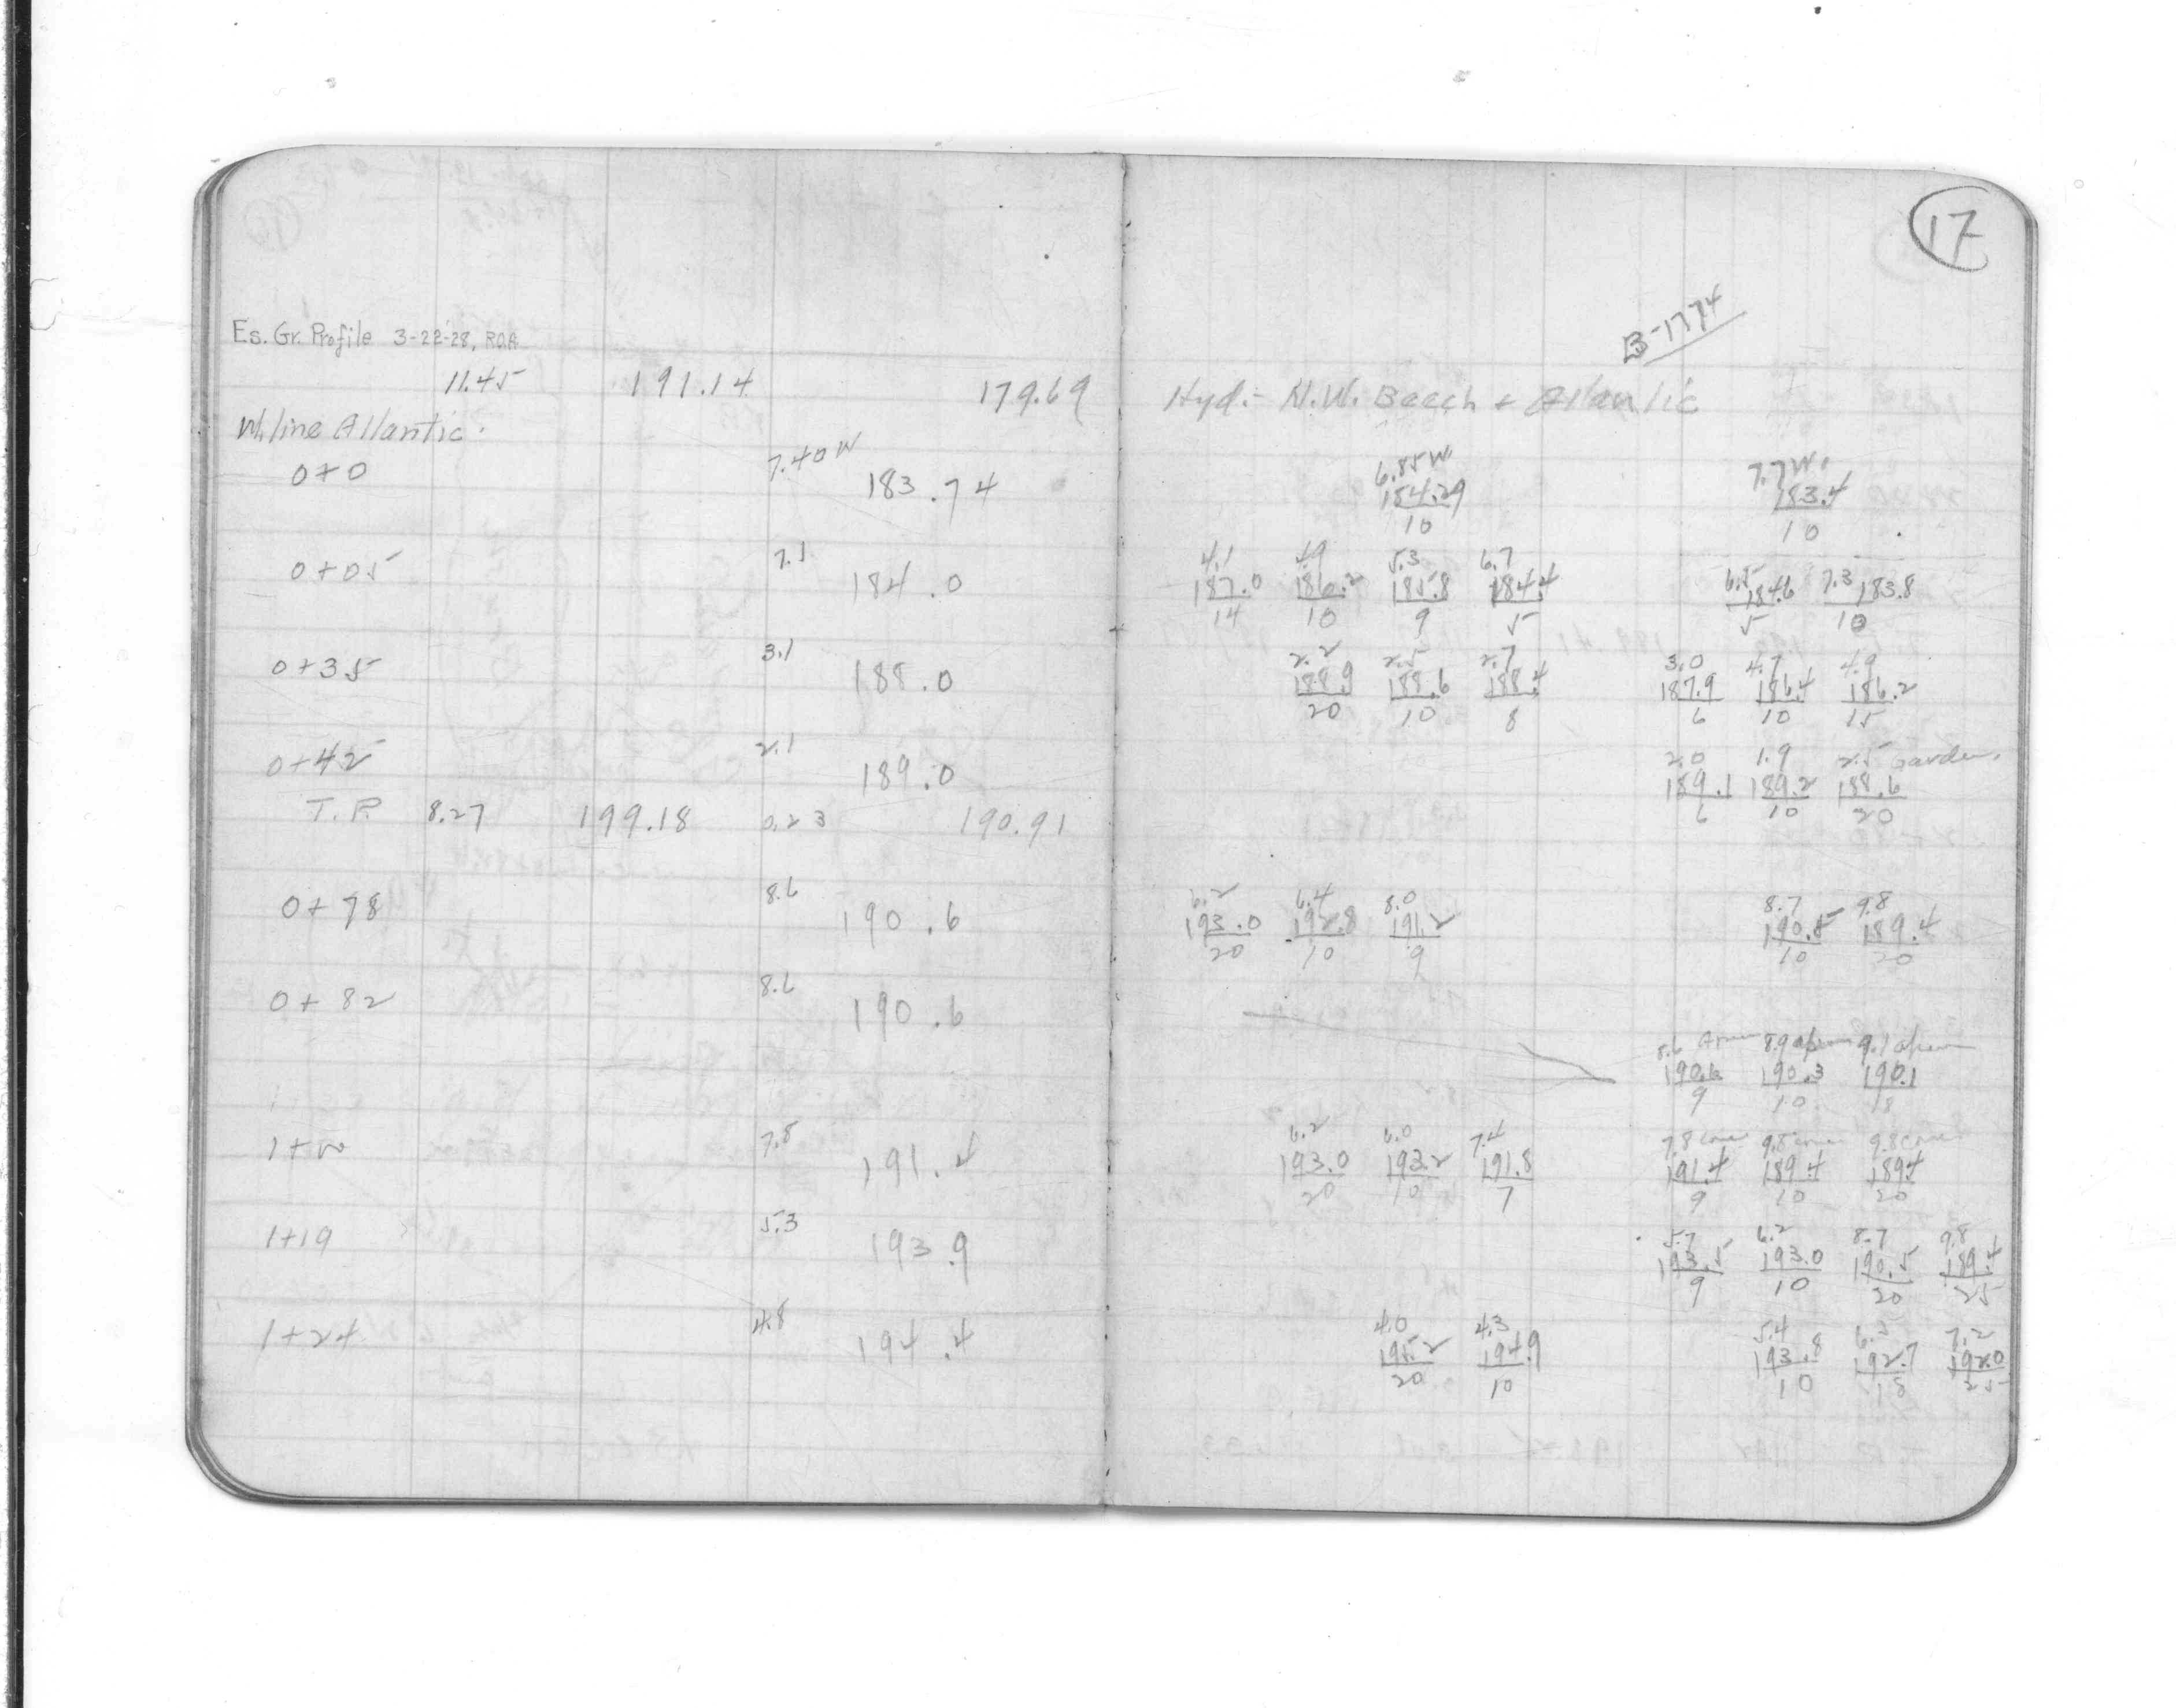 17
B-1774
Es. Gr. Profile 3-22-28, R.O.A.
11.45 191.14 179.69 Hyd.- N.W. Beech + Atlantic
W. line Atlantic.
7.40 W 6.85 W. 7.7 W.
0+0 183.74 184.29 183.4
10 10
7.1 4.1 4.9 5.3 6.7 6.5 7.3
0+05 184.0 187.0 186.2 185.8 184.4 184.6 183.8
14 10 9 5 5 10
3.1 2.2 2.5 2.7 3.0 4.7 4.9
0+35 188.0 188.9 188.6 188.4 187.9 186.4 186.2
20 10 8 6 10 15
2.1 2.0 1.9 2.5 Garden.
0+42 189.0 189.1 189.2 188.6
6 10 20
T.P. 8.27 199.18 0.23 190.91
8.6 6.2 6.4 8.0 8.7 9.8
0+78 190.6 193.0 192.8 191.2 190.5 189.4
20 10 9 10 20
8.6
0+82 190.6
8.6 8.9 apron 9.1 apron
190.6 190.3 190.1
9 10 18
7.8 6.2 6.0 7.4 7.8 9.8 9.8
191.4 193.0 193.2 191.8 191.4 189.4 189.4
20 10 7 9 10 20
5.3 5.7 6.2 8.7 9.8
1+19 193.9 193.5 193.0 190.5 189.4
9 10 20 25
4.8 4.0 4.3 5.4 7.2
1+24 194.4 195.2 194.9 193.8 192.7 192.0
20 10 10 18 25